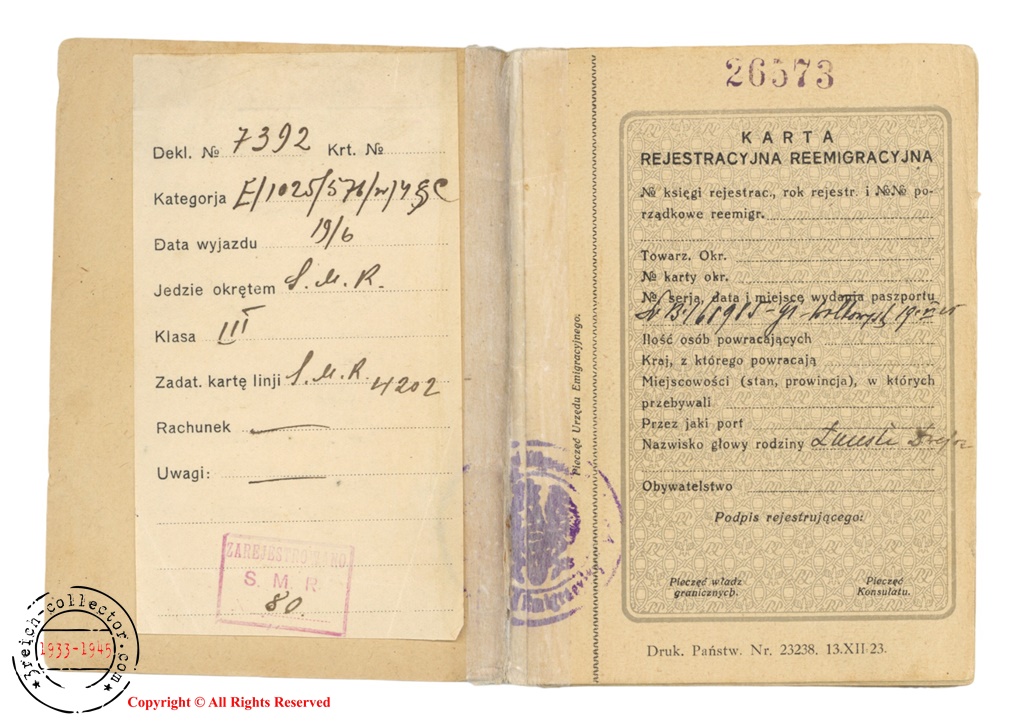 Dekl. № 7392 Krt. №
Kategorja E/1025/576/
Data wyjazdu 19/6
Jedzie okrętem S. M. R.
Klasa III
Zadat. kartę linji S. M. R. 4202
Rachunek
Uwagi:
ZAREJESTROWANO
S. M. R.
80
Pieczęć Urzędu Emigracyjnego:
26573
KARTA
REJESTRACYJNA REEMIGRACYJNA
№ księgi rejestrac., rok rejestr. i №№ po-
rządkowe reemigr.
Towarz. Okr.
№ karty okr.
№ serja, data i miejsce wydania paszportu
Ilość osób powracających
Kraj, z którego powracają
Miejscowości (stan, prowincja), w których
przebywali
Przez jaki port
Nazwisko głowy rodziny
Obywatelstwo
Podpis rejestrującego:
Pieczęć władz
granicznych.
Pieczęć
Konsulatu.
Druk. Państw. Nr. 23238. 13.XII-23.
3reich-collector.com
1933-1945
Copyright © All Rights Reserved